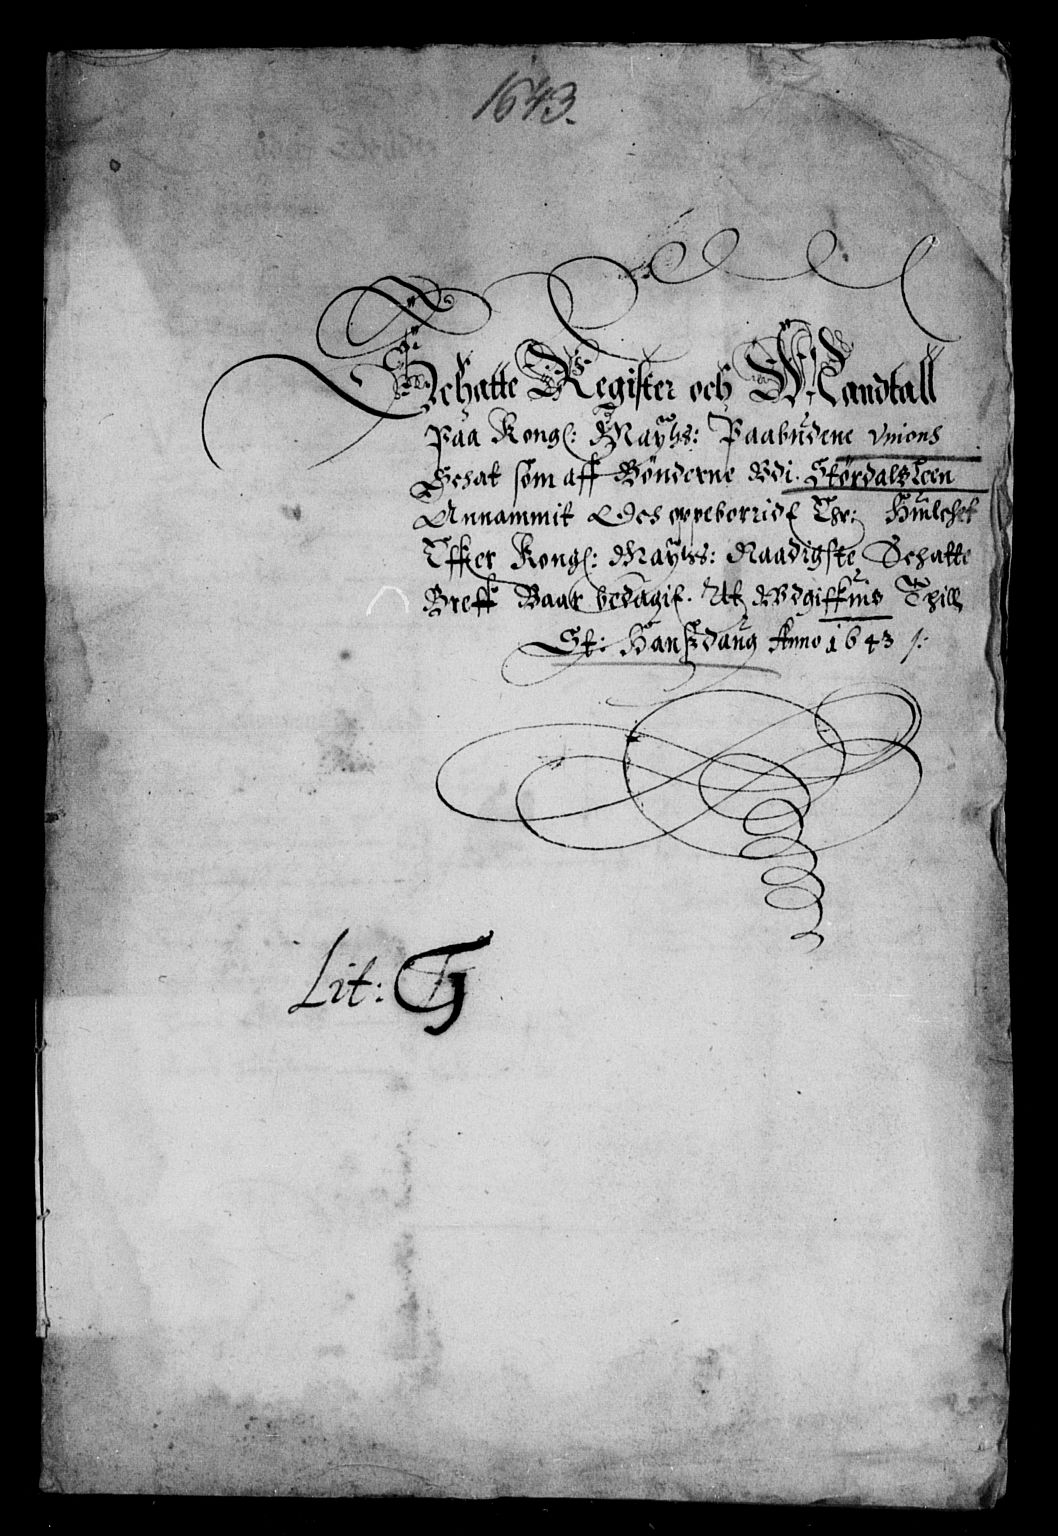 1643.
Schatte Register och Mandtall
Paa Kong: Maytts: Paabudene Vnions
Schat som aff Bönderne Vdi Stördalsleen
Annammit Och oppeborrid
Effter Kong: Maytts: Naadigste Schatte
Breff At Vdgiffuis Thill
St: Hanszdaug Anno 1643 /:
Lit: G